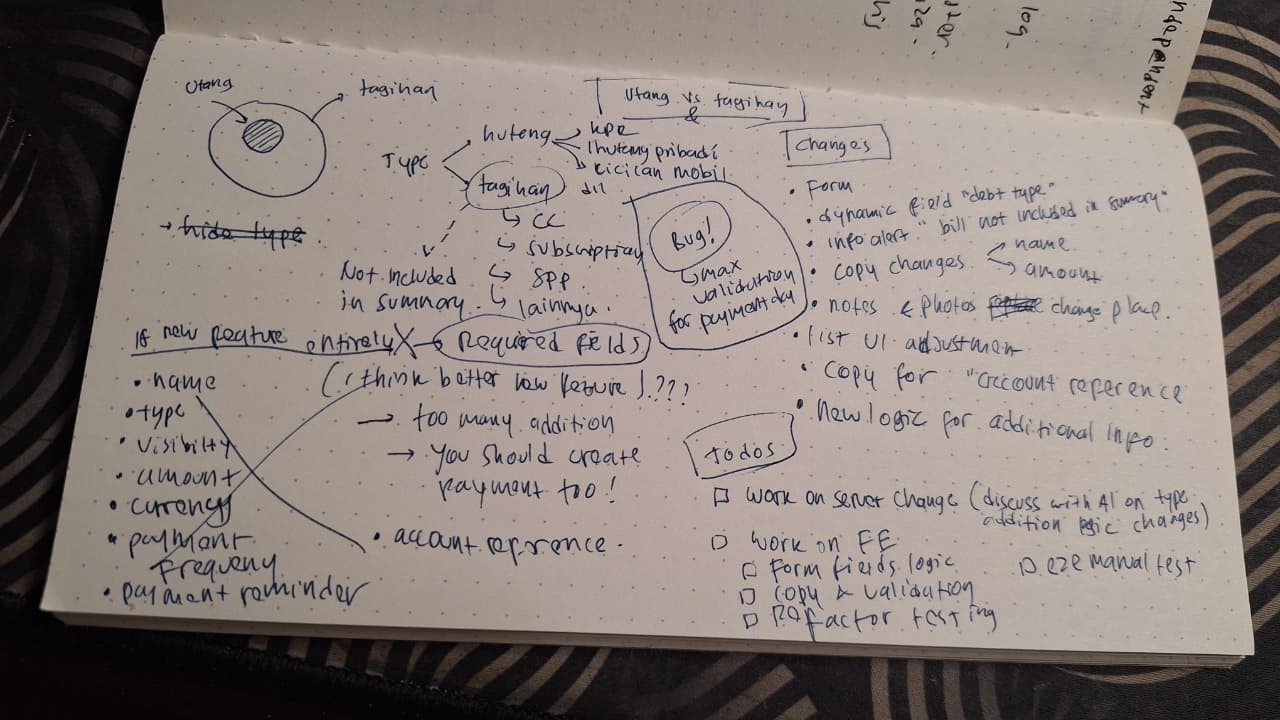 utang
tagihan
Utang vs tagihan
&
Type
huteng
KPR
huteng pribadi
cicilan mobil
dll
tagihan
CC
subscription
SPP
lainnya.
Not included
in summary
→ hide type
Bug!
max
validation
for payment day
If new feature entirely
Required fields
(i think better low require).???
→ too many addition
→ you should create
payment too!
• name
• type
• visibilty
• amount
• currency
• payment
frequency
• payment reminder
• account reference.
Changes
• Form
• dynamic field "debt type"
• info alert "bill not included in summary"
• copy changes
name
amount
• notes & photos change place.
• list UI adjustment
• copy for "account reference
• New logic for additional info.
todos
□ work on server change (discuss with AI on type
addition logic changes)
□ work on FE
□ Form fields logic
□ copy & validation
□ Refactor testing
□ e2e manual test
ndependent
log.